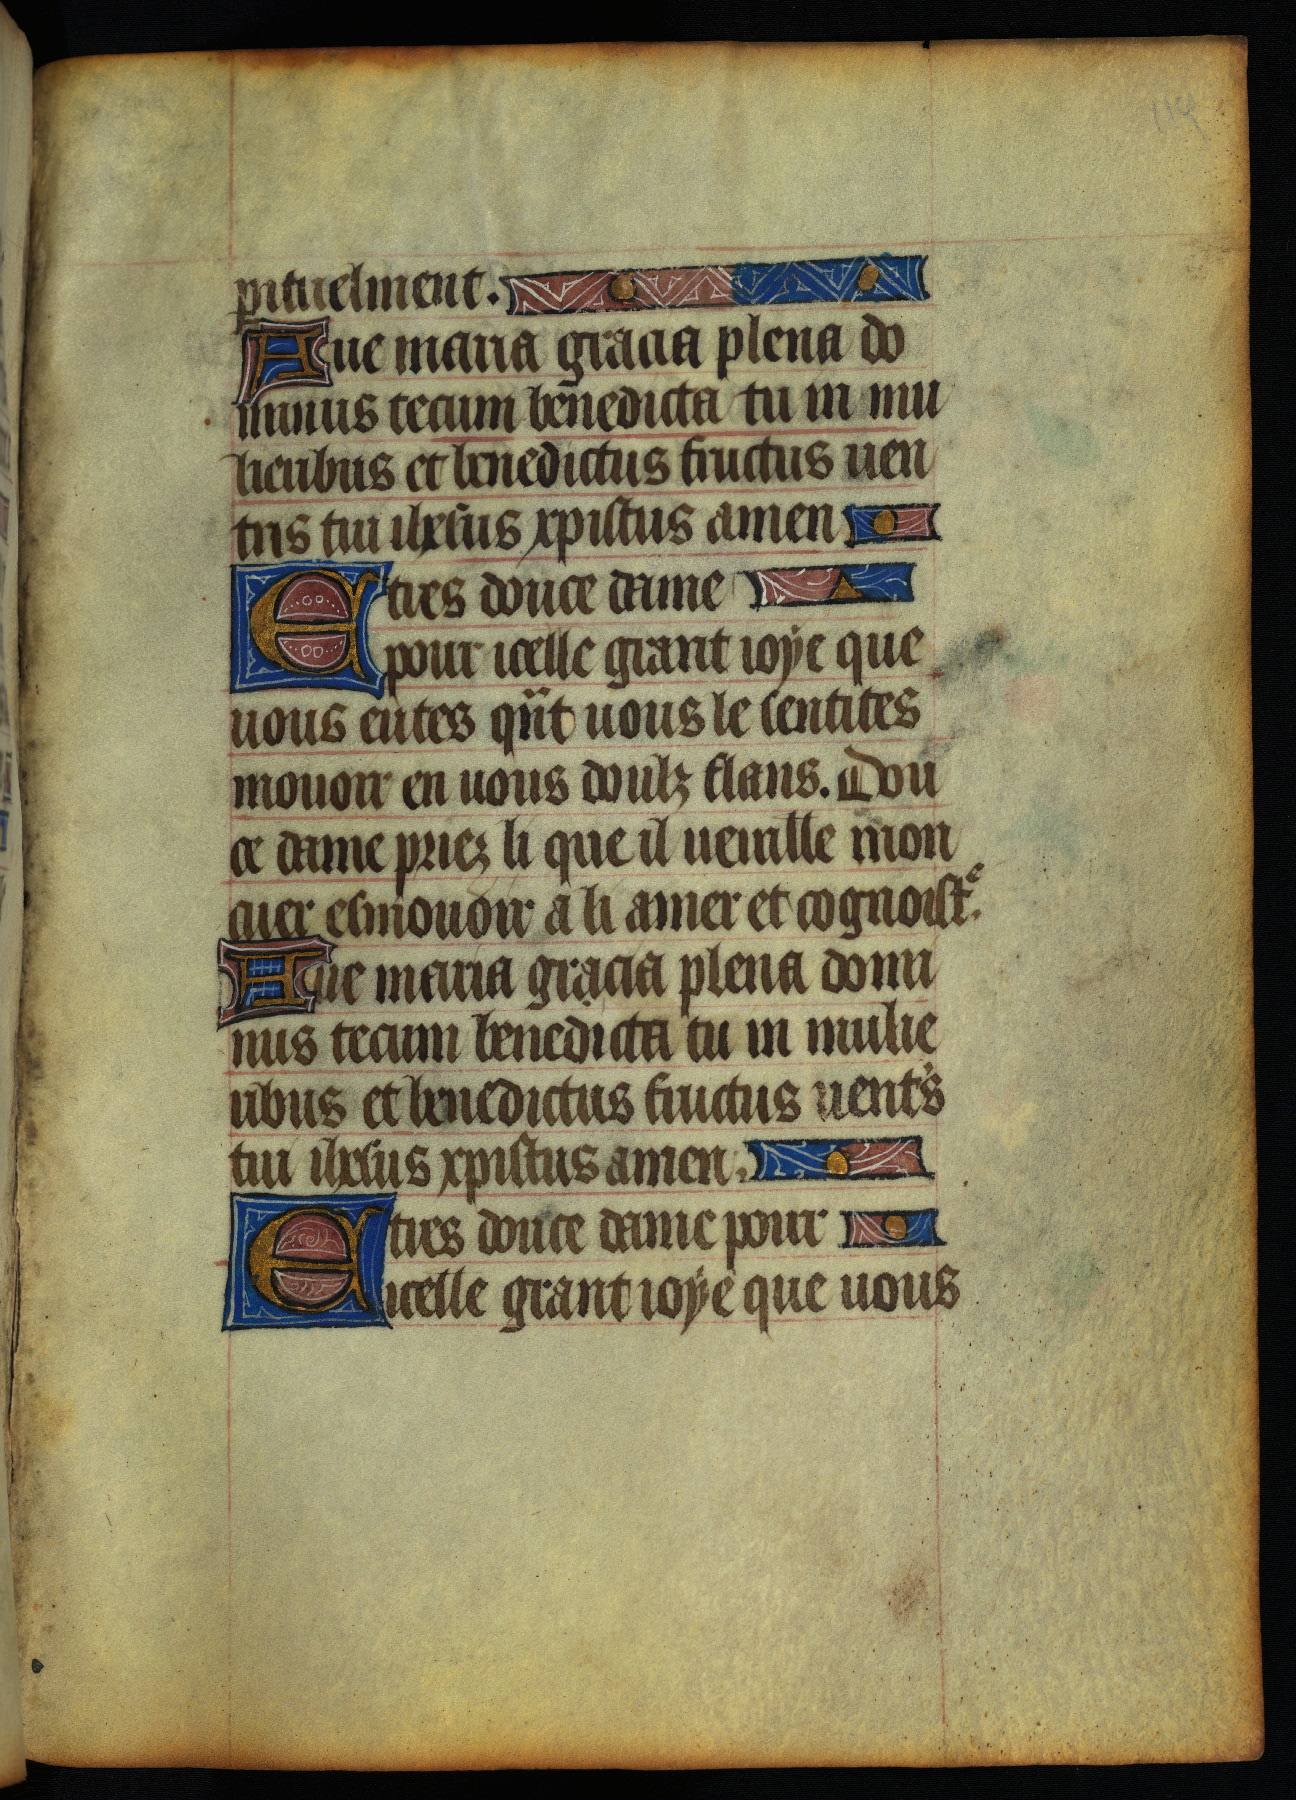 114
pituelment.
Aue maria gracia plena do
minus tecum benedicta tu in mu
lieribus et benedictus fructus uen
tris tui ihesus xpistus amen
E tres douce dame
pour icelle grant ioÿe que
uous eutes qñt uous le sentites
mouoir en uous doulz flans. Dou
ce dame priez li que il ueuille mon
cuer esmouoir a li amer et cognoistᵉ.
Aue maria gracia plena domi
nus tecum benedicta tu in mulie
ribus et benedictus fructus uent's
tui ihesus xpistus amen.
E tres douce dame pour
icelle grant ioÿe que uous